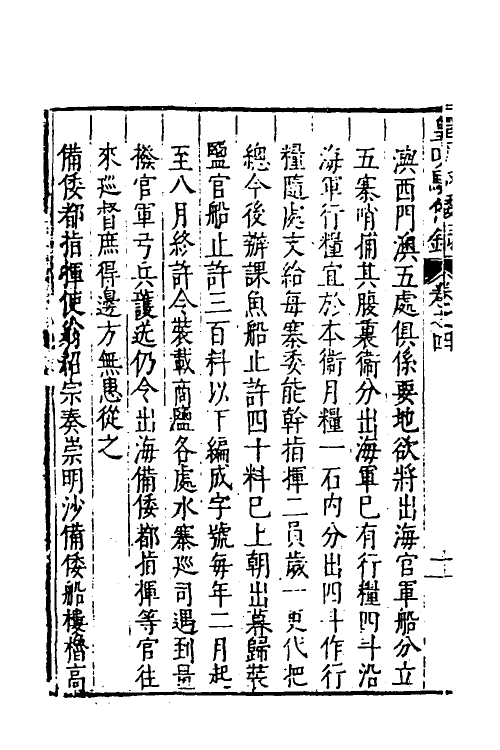 皇明馭倭錄 卷之四
十一
澳西門澳五處俱係要地欲將出海官軍船分立
五寨哨備其腹裏衞分出海軍已有行糧四斗沿
海軍行糧宜於本衞月糧一石內分出四斗作行
糧隨處支給每寨委能幹指揮二員歲一更代把
總今後辦課魚船止許四十料已上朝出暮歸裝
鹽官船止許三百料以下編成字號每年二月起
至八月終許令裝載商鹽各處水寨巡司遇到量
撥官軍弓兵護送仍令出海備倭都指揮等官往
來巡督庶得邊方無患從之
備倭都指揮使翁紹宗奏崇明沙備倭船樓櫓高